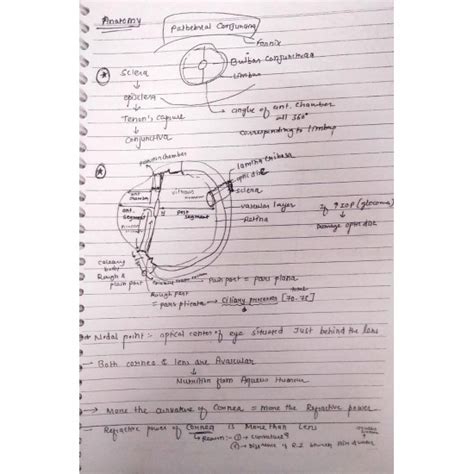 Anatomy
Palbebral Conjunctiva
Fornix
Bulbar Conjunctiva
Limbus
Sclera
↓
episclera
↓
Tenon's Capsule
↓
Conjunctiva
angle of ant. chamber
all 360°
Corresponding to limbus
post chamber
lamina cribosa
optic disc
sclera
vascular layer
Retina
ant. chamber
vitreous
ant. segment
post segment
If ↑IOP (glocoma)
↓
Damage optic disc
ciliary body
Rough & plain part
Plain part = pars plana
Rough part = pars plicata → Ciliary processes [70-75]
Nodal point :- optical center of eye situated Just behind the lens
- Both cornea & lens are Avascular
↓
Nutrition from Aqueous Humour
- More the curvature of Cornea = more the Refractive power.
- Refractive power of Cornea is More than Lens
↳ Reason:- ① → Curvature↑
② → Difference of R.I between